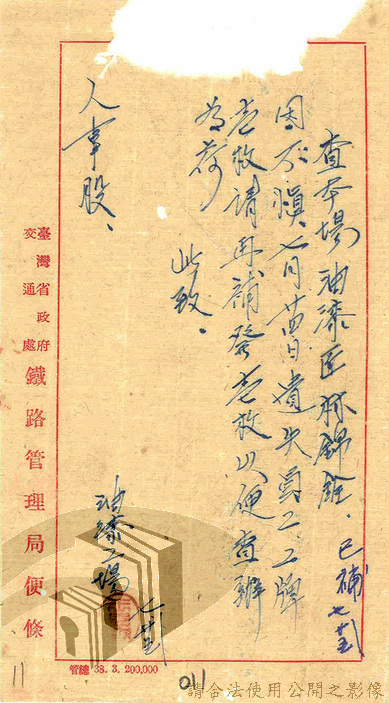 查本場油漆匠林錦銓、
因不慎、七月廿四日遺失員工工牌
壹枚請再補發壹枚以便查辦
為荷
此致、
人事股、
油漆工場
七廿五
已補七廿五
臺灣省政府
交通處
鐵路管理局便條
管總 38. 3. 200,000
11
011
請合法使用公開之影像